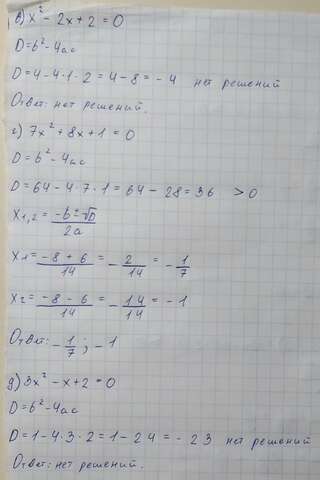 в) x² - 2x + 2 = 0
D = b² - 4ac
D = 4 - 4·1·2 = 4 - 8 = -4 нет решений
Ответ: нет решений.
г) 7x² + 8x + 1 = 0
D = b² - 4ac
D = 64 - 4·7·1 = 64 - 28 = 36 > 0
x₁,₂ = (-b ± √D) / 2a
x₁ = (-8 + 6) / 14 = -2/14 = -1/7
x₂ = (-8 - 6) / 14 = -14/14 = -1
Ответ: -1/7; -1
д) 3x² - x + 2 = 0
D = b² - 4ac
D = 1 - 4·3·2 = 1 - 24 = -23 нет решений
Ответ: нет решений.